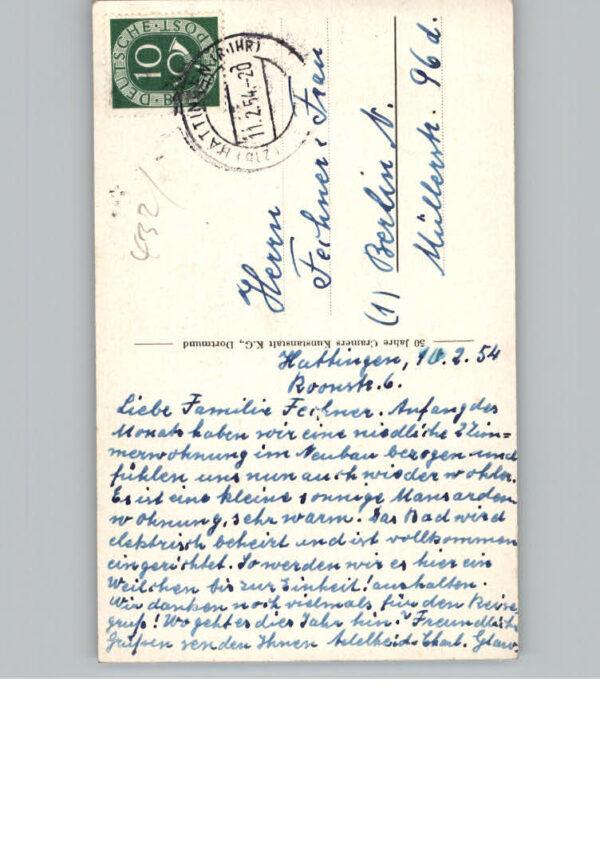 DEUTSCHE BUNDESPOST
10
HATTINGEN (RUHR)
11.2.54.-20
(21b)
432/
Herrn
Fechner u. Frau
(1) Berlin N.
Müllerstr. 96 d.
50 Jahre Cramers Kunstanstalt K.G., Dortmund
Hattingen, 10.2.54
Roonstr. 6.
Liebe Familie Fechner. Anfang des
Monats haben wir eine niedliche 2 Zim=
merwohnung im Neubau bezogen und
fühlen uns nun auch wieder wohler.
Es ist eine kleine sonnige Mansarden
wohnung, sehr warm. Das Bad wird
elektrisch beheizt und ist vollkommen
eingerichtet. So werden wir es hier ein
Weilchen bis zur Einheit! aushalten.
Wir danken noch vielmals für den Reise
gruß! Wo geht es dies Jahr hin? Freundliche
Grüßen senden Ihnen Adelheid